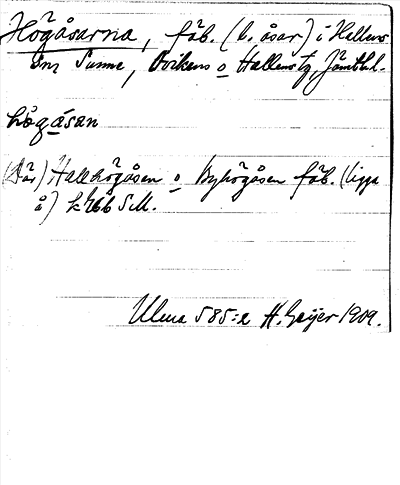 Högåsarna, fäb. (b. åsar) i Hallens
sn, Sunne, Ovikens o Hallens tg, Jämtl.
högåsan
(Där) Hallhögåsen o Byhögåsen fäb. (ligga
å) k 766 SM.
Ulma 585:2 H. Geijer 1909.